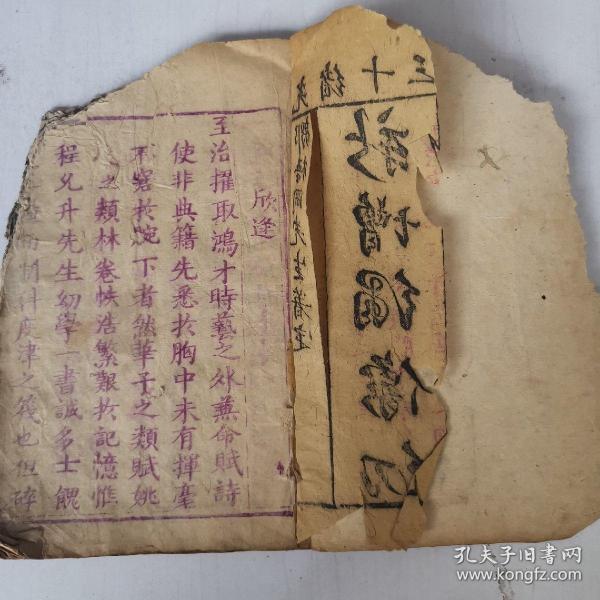 三十緒光
鄒梧岡先生著
新增繩像幼
欣逢
至治擢取鴻才時藝之外兼命賦詩
使非典籍先悉於胸中未有揮毫
不窘於腕下者然華子之類賦姚
之類林卷帙浩繁艱於記憶惟
程允升先生幼學一書誠多士餽
津之筏也但碎
孔夫子旧书网
www.kongfz.com